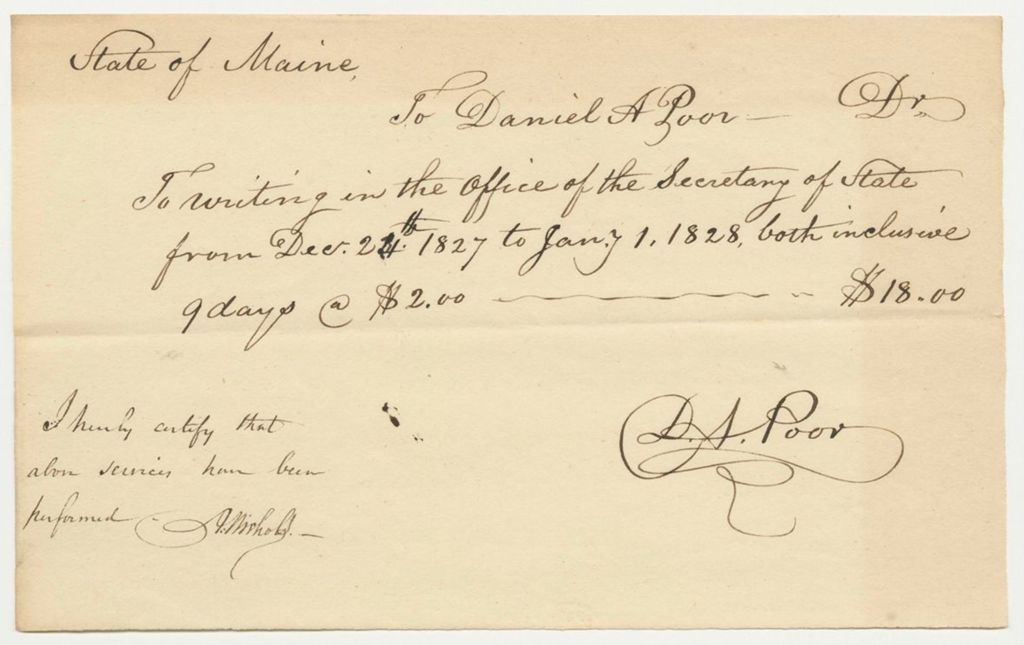 State of Maine,
To Daniel A Poor — Dr.
To writing in the Office of the Secretary of State
from Decr. 24th 1827 to Jany 1. 1828, both inclusive
9 days @ $2.00 — $18.00
I hereby certify that
above services have been
performed —
A. Nichols. —
D. A. Poor